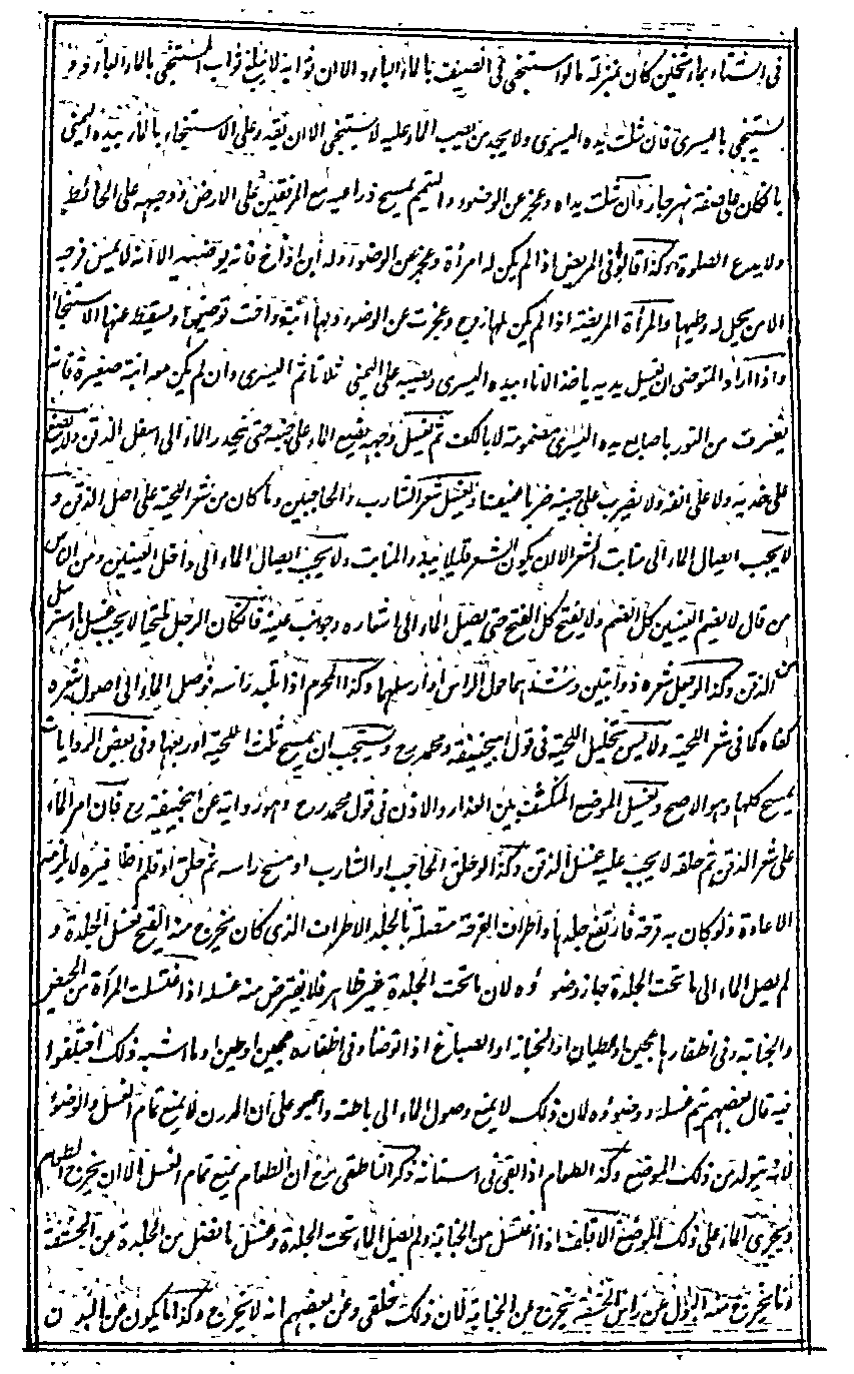 في الشتاء بماء سخين كان بمنزلة ما لو استنجى في الصيف بالماء البارد الا ان ثوابه لا يبلغ ثواب المستنجي بالماء البارد و
يستنجي باليسرى فان شلت يده اليسرى ولا يجد من يصب الماء عليه لا يستنجي الا ان يقدر على الاستنجاء بالماء بيده اليمنى
بان كان على ضفة نهر جار وان شلت يداه وعجز عن الوضوء والتيمم يمسح ذراعيه مع المرفقين على الارض ووجهه على الحائط
ولا يدع الصلوة وكذا قالوا في المريض اذا لم يكن له امرأة وعجز عن الوضوء وله ابن او اخ فانه يوضيه الا انه لا يمس فرجه
الا من يحل له وطيها والمرأة المريضة اذا لم يكن لها زوج وعجزت عن الوضوء ولها ابنة او اخت توضيها ويسقط عنها الاستنجاء
واذا اراد المتوضي ان يغسل يديه ياخذ الاناء بيده اليسرى ويصبه على اليمنى ثلاثا ثم اليسرى وان لم يكن معه انية صغيرة فانه
يغترف من التور باصابع يده اليسرى مضمومة لا بالكف ثم يغسل وجهه يضع الماء على جبينه حتى ينحدر الماء الى اسفل الذقن ولا يضع
على خديه ولا على انفه ولا يضرب على جبينه ضربا عنيفا ويغسل شعر الشارب والحاجبين وما كان من شعر اللحية على اصل الذقن و
لا يجب ايصال الماء الى منابت الشعر الا ان يكون الشعر قليلا يبدو المنابت ولا يجب ايصال الماء الى داخل العينين ومن الناس
من قال لا يضم العينين كل الضم ولا يفتح كل الفتح حتى يصل الماء الى اشفاره وجوانب عينيه فان كان الرجل ملتحيا لا يجب غسل ما استرسل
من الذقن وكذا لو جعل شعره ذوابتين وشدهما حول الراس او ارسلها وكذا المحرم اذا لبد راسه فوصل الماء الى اصول شعره
كفاه كما في شعر اللحية وليس تخليل اللحية في قول ابيحنيفة ومحمد رح ويستحب ان يمسح ثلث اللحية او ربعها وفي بعض الروايات
يمسح كلها وهو الاصح ويغسل الموضع المنكشف بين العذار والاذن في قول محمد رح وهو رواية عن ابيحنيفة رح فان امر الماء
على شعر الذقن ثم حلقه لا يجب عليه غسل الذقن وكذا لو حلق الحاجب او الشارب او مسح راسه ثم حلق او قلم اظافيره لا يلزمه
الاعادة ولو كان به قرحة فارتفع جلدها واطراف القرحة متصلة بالجلد الا طرف الذي كان يخرج منه القيح فغسل الجلدة و
لم يصل الماء الى ما تحت الجلدة جاز وضوءه لان ما تحت الجلدة غير ظاهر فلا يفترض منه غسله اذا اغتسلت المرأة من الحيض
والجنابة وفي اظفارها عجين او الطيان او الخباز او الصباغ اذا توضأ وفي اظفاره عجين او طين او ما اشبه ذلك اختلفوا
فيه قال بعضهم يتم غسله ووضوءه لان ذلك لا يمنع وصول الماء الى باطنه واجمعوا على ان الدرن لا يمنع تمام الغسل والوضوء
لانه يتولد من ذلك الموضع وكذا الطعام اذا بقي في اسنانه ذكر الناطفي رح ان الطعام يمنع تمام الغسل الا ان يخرج الطعام
ويجري الماء على ذلك الموضع الاقلف اذا اغتسل من الجنابة ولم يصل الماء تحت الجلدة وغسل ما فضل من الجلدة عن الحشفة
وما يخرج منه البول عن راس الحشفة يخرج عن الجنابة لان ذلك خلقي وعن بعضهم انه لا يخرج وكذا ما يكون عن البول